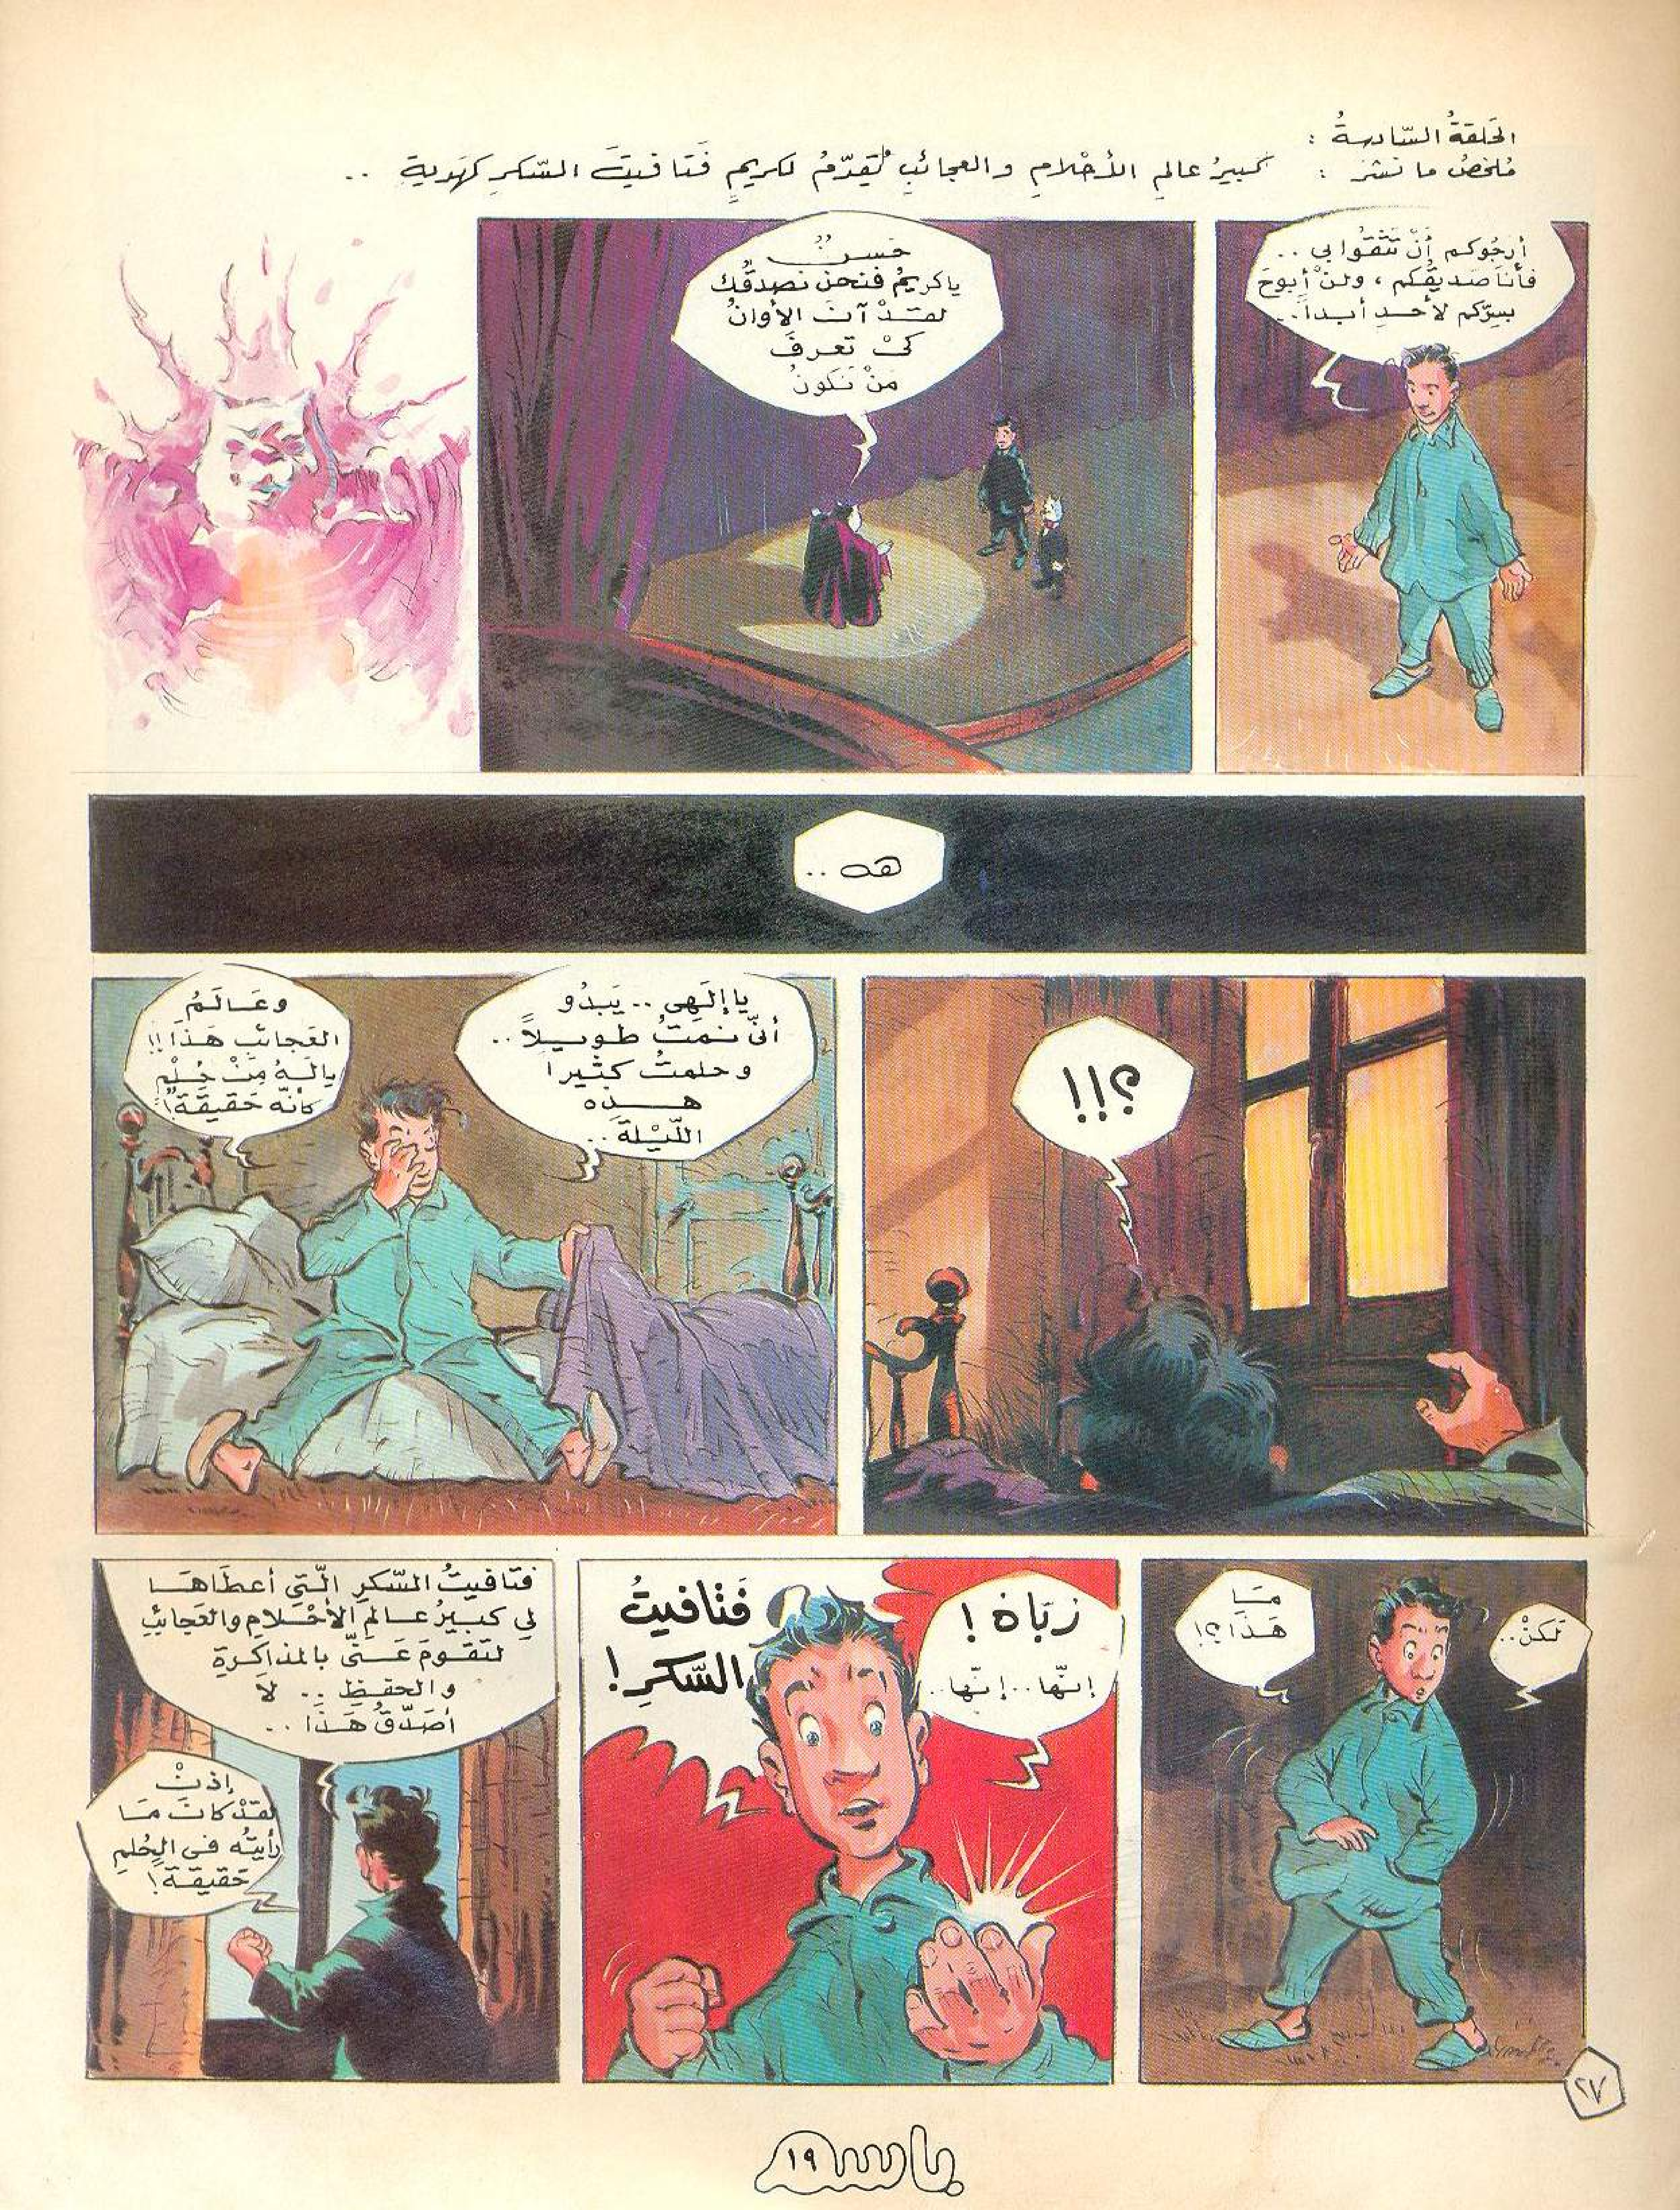 الحَلقةُ السّادسةُ :
مُلخصُ ما نشرَ : كبيرُ عالمِ الأحْلامِ والعجائبِ يُقدّمُ لكريمٍ فَتافيتَ السّكرِ كهَديةٍ ..
أرجُوكم أنْ تثقُوا بي ..
فأنا صَديقُكم ، ولنْ أبوحَ
بسِرّكم لأحدٍ أبداً ..
حَسنٌ
ياكريمُ فنحنُ نصدقُك
لقدْ آنَ الأوانُ
كىْ تعرفَ
مَنْ نَكونُ
هه ..
؟!!
يا إلَهِى .. يَبدُو
أنّى نمتُ طويلاً ..
وحلمتُ كثيراً
هذه
اللّيْلةَ ..
وعَالَمُ
العَجائبِ هَذا !!
يالَهُ مِنْ حُلْمٍ
كأنّه حَقيقَة !
لَكنْ ..
مَا
هَذا ؟!
ربّاهُ !
إنّها .. إنّها ..
فَتافيتُ
السّكرِ !
فتافيتُ السّكرِ الّتي أعطَاهَا
لِي كبيرُ عالمِ الأحْلامِ والعَجائبِ
لتَقومَ عَنّى بالمذاكَرةِ
والحفظِ .. لاَ
أصَدّقُ هَذا ..
إذنْ
لقدْ كانَ مَا
رأيتُه فى الحُلمِ
حَقيقَة !
٢٧
باسم
١٩